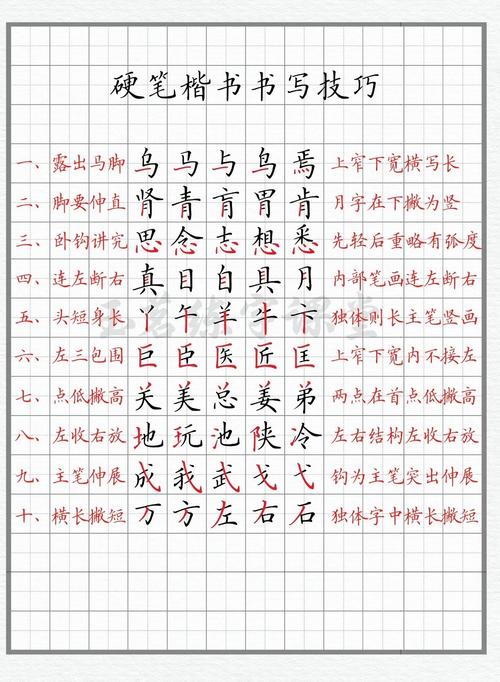 硬笔楷书书写技巧
一、露出马脚 乌马与鸟焉 上窄下宽横写长
二、脚要伸直 肾青肓胃肯 月字在下撇为竖
三、卧钩讲究 思念志想悉 先轻后重略有弧度
四、连左断右 真目自具月 内部笔画连左断右
五、头短身长 丫午羊牛卞 独体则长主笔竖画
六、左三包围 巨臣医匠匡 上窄下宽内不接左
七、点低撇高 关美总姜弟 两点在首点低撇高
八、左收右放 地玩池陕冷 左右结构左收右放
九、主笔伸展 成我武戈弋 钩为主笔突出伸展
十、横长撇短 万方左右石 独体字中横长撇短